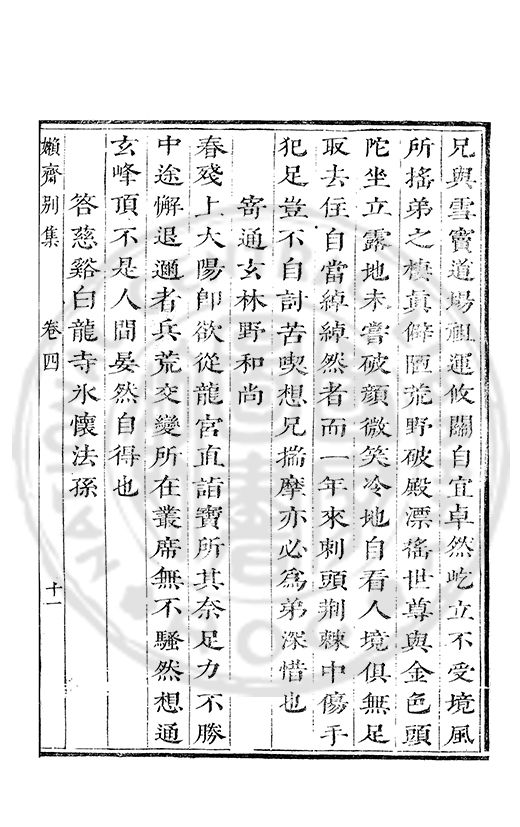 兄與雪竇道場祖運攸關自宜卓然屹立不受境風
所搖弟之棲眞僻陋荒野破殿漂搖世尊與金色頭
陀坐立露地未嘗破顏微笑冷地自看人境俱無足
取去住自當綽綽然者而一年來刺頭荆棘中傷手
犯足豈不自討苦喫想兄揣摩亦必為弟深惜也
寄通玄林野和尚
春殘上大陽卽欲從龍宮直詣寶所其奈足力不勝
中途懈退邇者兵荒交變所在叢席無不騷然想通
玄峰頂不是人間晏然自得也
答慈谿白龍寺氷懷法孫
嬾齋别集
卷四
十一